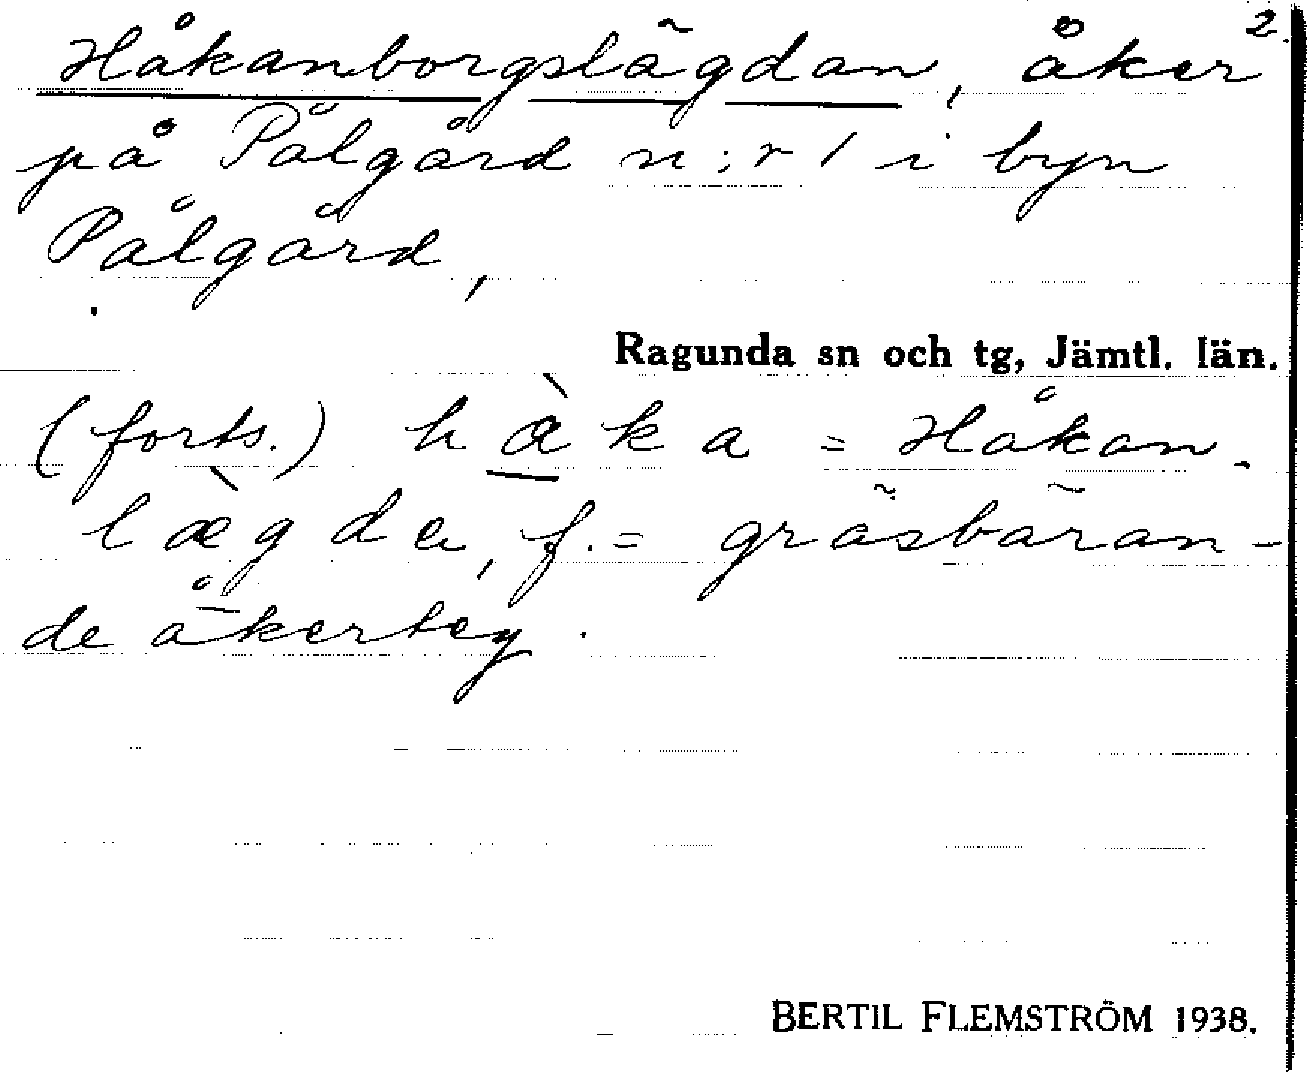 2.
Håkanborgslägdan, åker
på Pålgård n:r 1 i byn
Pålgård,
Ragunda sn och tg, Jämtl. län.
(forts.) hὰka = Håkan.
læ̀gda, f. = gräsbäran-
de åkerteg.
BERTIL FLEMSTRÖM 1938.